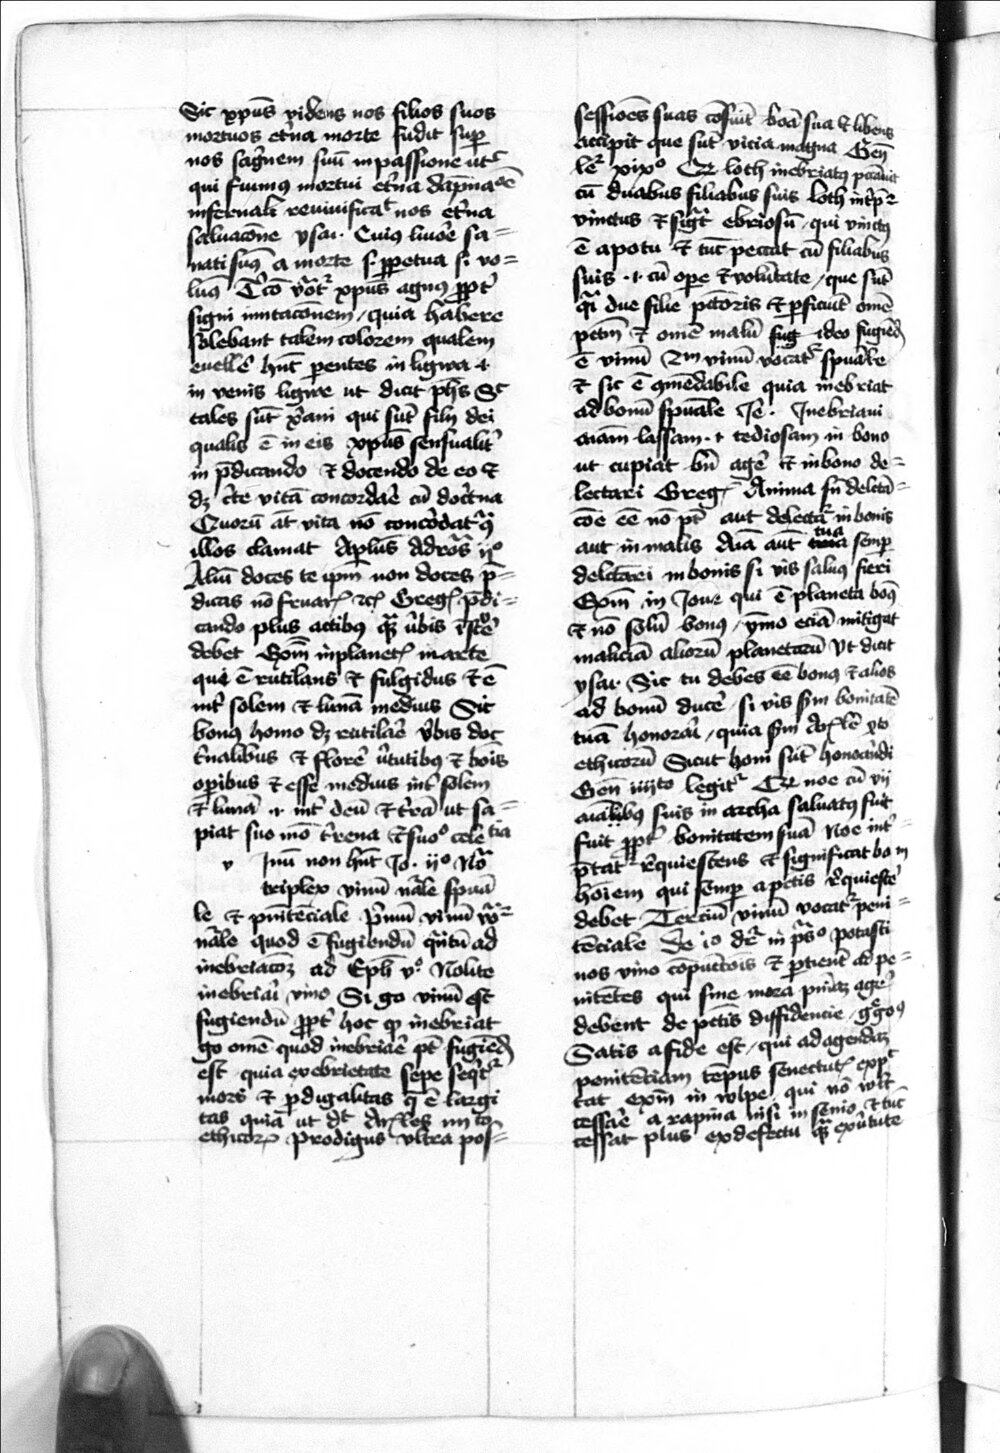 Sic xpūs videns nos filios suos
mortuos et̄na morte fudit sup
nos sāgnem suū in passione ut
qui fuimꝰ mortui et̄na dāpnacōē
infernali reviuificat nos et̄na
saluacōne ysa. Cuiꝰ liuore sa=
nati sumꝰ a morte .s. ppetua si vo=
lumꝰ Tcō xpūs agnꝰ ppt
signi imitacōnem / quia habere
solebant talem colorem qualem
euellē hnt pentes in ligwa ⁊
in venis ligwe ut dicit phs Sic
tales sūt xani qui sūt filij dei
qualis ē in eis xpūs sensualit
in pdicando et docendo de eo et
dꝫ vitā concordaē cū doctna
Quorū āt vita nō concordat
illos clamat Aplūs Ad rōs ijº
Aliū doces te ipm non doces p=
dicas nō furar ꝛc Greg pdi=
cando plus actibꝰ qȝ ubis
debet Exm in planet marte
qui ē rutilans et fulgidus et ē
int solem et lunā medius Sic
bonꝰ homo dꝫ rutilaē vbis doc
tnalibus et florē vtutibꝰ et bōis
opibus et esse medius int solem
et lunā ⁊ int deū et trā ut sa=
piat suo mō trena et suo celestia
v Inū non hnt Jo. ijº Nō
triplex vinū nāle spūa
le et pnitēciale Pmū vinū
nāle quod ē fugiendū qntū ad
inebriacōꝫ ad Eph vº Nolite
inebriai vino Si go vinū est
fugiendū ppt hoc qꝫ inebriat
go omē quod inebriaē pt fugiēdū
est quia ex ebrietate sepe seqt
mors et pdigalitas q ē largi
tas quia ut dt Arles iiijto
ethicorꝫ Prodigus vltra pos=
sessiōes suas cōsūit bōa sua et libens
accipit que sūt vicia magna Gen
xixº Qꝫ loth inebriatꝰ peccauit
cū duabus filiabus suis Loth intp
vinctus et sigt ebriosū / qui vinctꝰ
ē a potu et tūc peccat cū filiabus
suis .i. cū ope et volūtate / que sūt
qi due filie pctōris et pficiūt omē
pctm et omē malū fug ideo fugiēdū
ē vinū 2m vinū vocat spuāle
et sic ē qmēdabile quia inebriat
ad bonū spuāle Je. Inebriaui
aiam lassam. ⁊ tediosam in bono
ut cupiat bn agē et in bono de=
lectari Greg Anima sn delcta=
cōe eē nō pt aut delectat in bonis
aut in malis Aia aut tua semp
delctarei in bonis si vis saluꝰ fieri
Exm in Joue qui ē planeta bonꝰ
et nō solū bonꝰ / ymo eciā mitigat
maliciā aliorū planetarū Vt dicit
ysa. Sic tu debes eē bonꝰ et alios
ad bonū ducē / si vis sm bonitatē
tuā honorari / quia sm Arle xto
ethicorū Sicut boni sūt honorādi
Gen iiijto legit Qꝫ noe cū vij
aialibus suis in archa saluatꝰ fuit
fuit ppt bonitatem suā Noe int=
ptat requiescens et significat bonū
hōiem qui semp a pctis requiescē
debet Terciū vinū vocat peni=
tēciale De iº dr in psº Potasti
nos vino cōpūctōis et ptient ad pe=
nitētes qui sine mora pniaꝫ agē
debent de pctis diffidencie / ggoꝰ
Satis a fide est / qui ad agendaꝫ
penitēciam tēpus senectut expe
tat exm in wlpe qui nō wlt
cessaē a rapina nisi in senio et tūc
cessat plus ex defectu qȝ ex vtute